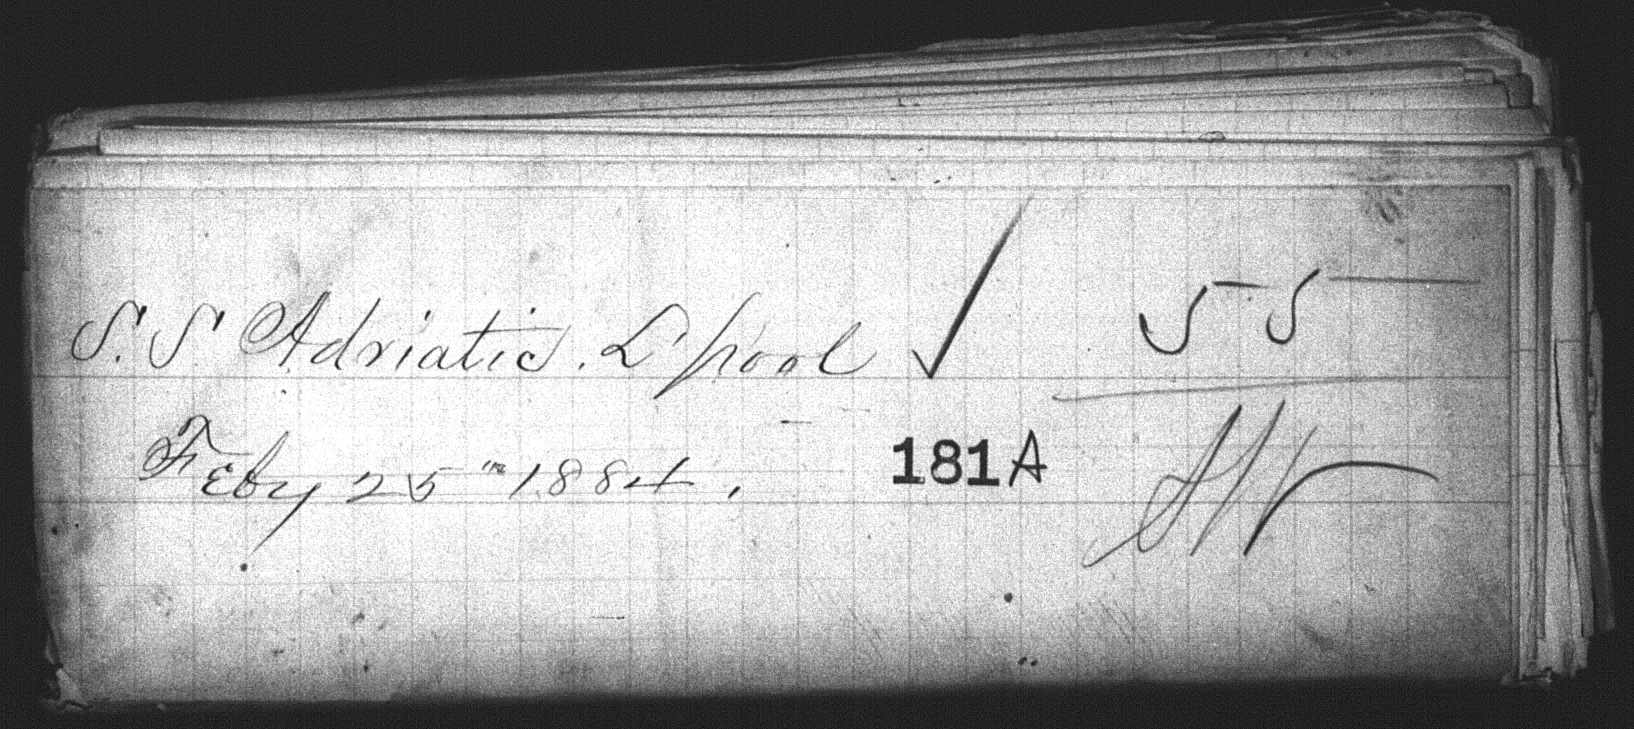 S.S Adriatic. L'pool ✓ 55
Feby 25th 1884.
181A